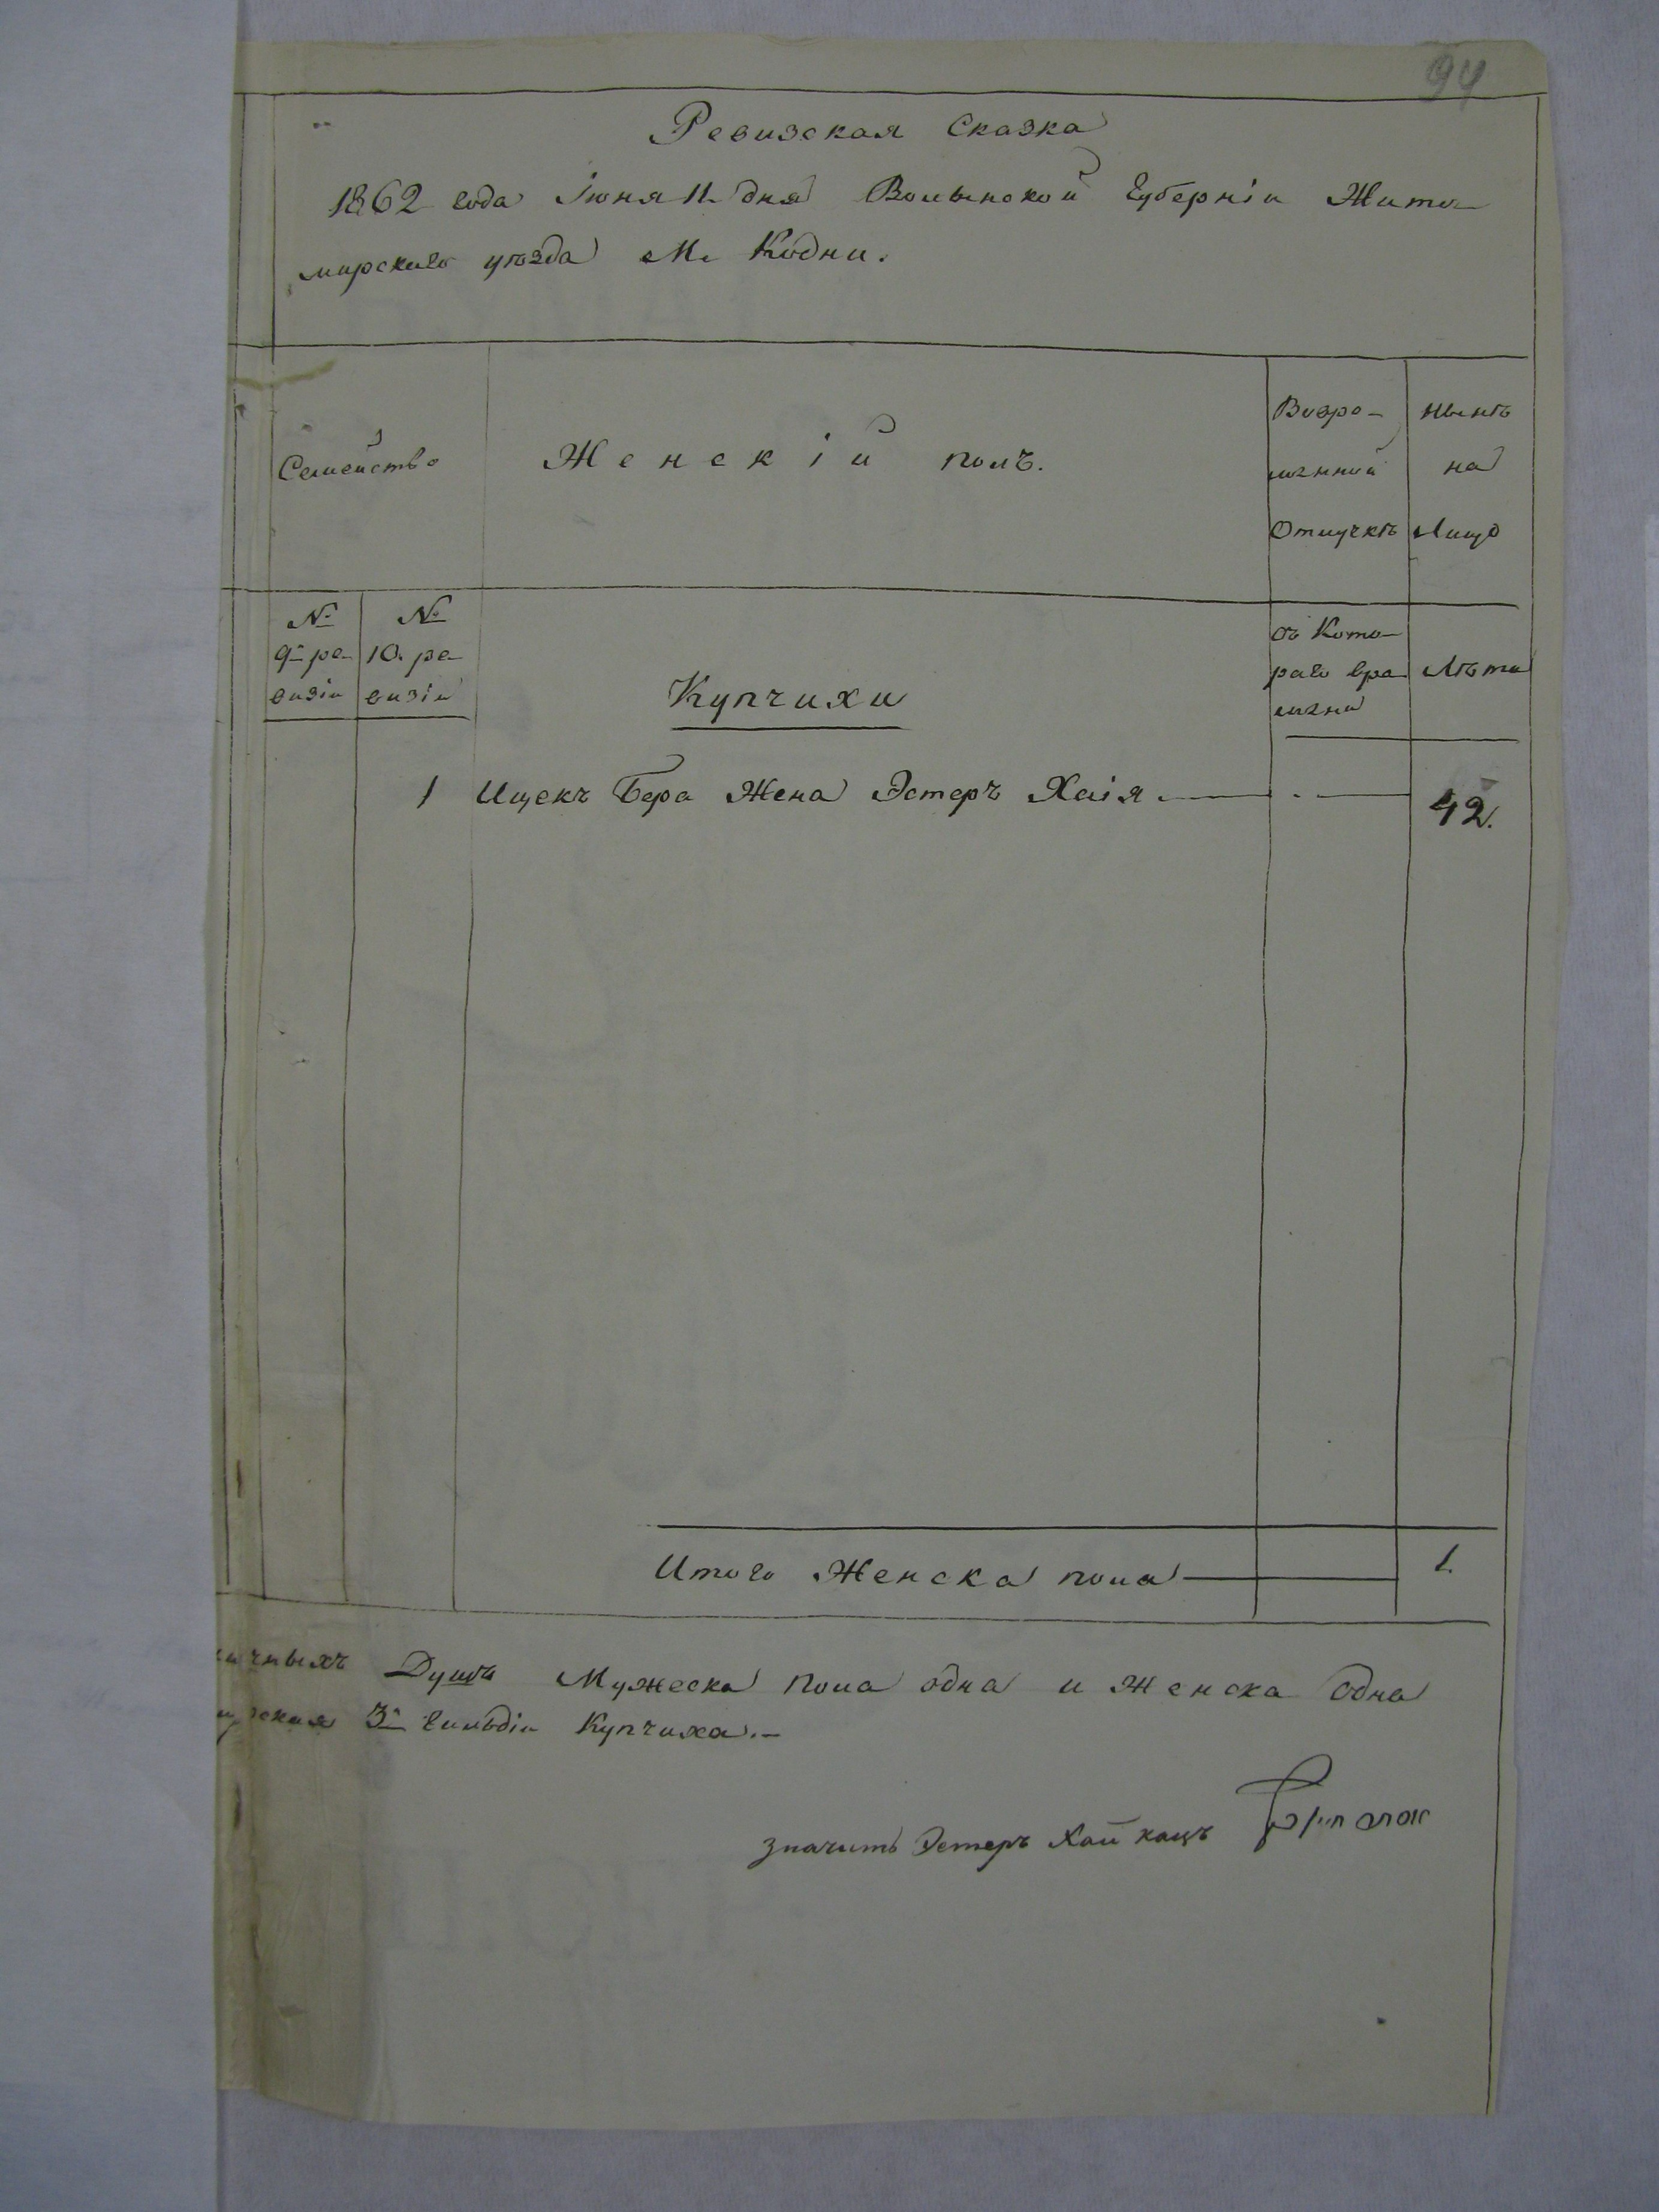 94
Ревизская Сказка
1862 года Июня 11 дня Волынской Губерніи Жито-
мирскаго уѣзда М. Кодни.
Семейство
Женскій полъ.
Во вре-
менной
Отлучкѣ
Нынѣ
на
Лицо
№
9й ре-
визіи
№
10. ре-
визіи
Купчихи
съ Кото-
раго вре
мени
Лѣта
1 Ицекъ Бера Жена Эстеръ Хаія — . — 42.
Итого Женска пола — 1.
личныхъ Душъ Мужеска пола одна и Женска одна
3й Гильдіи Купчиха.-
значитъ Эстеръ Хай кацъ